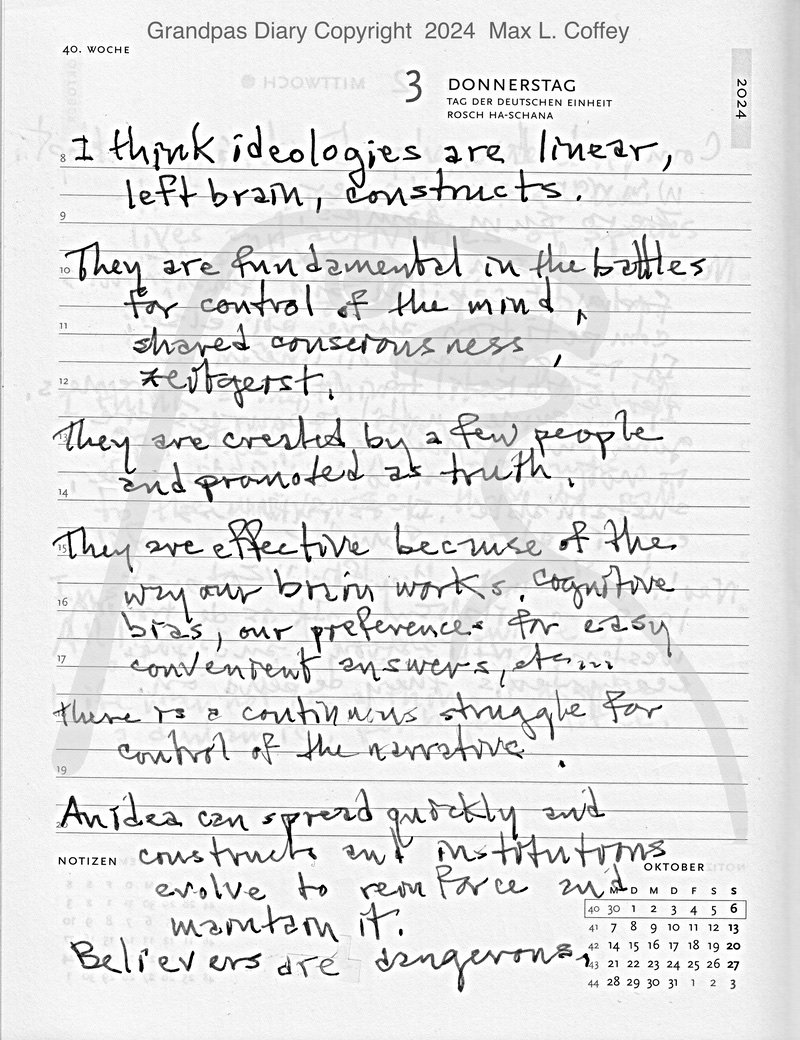 Grandpas Diary Copyright 2024 Max L. Coffey
40. WOCHE
3 DONNERSTAG
TAG DER DEUTSCHEN EINHEIT
ROSCH HA-SCHANA
2024
8 I think ideologies are linear,
left brain, constructs.
9
10 They are fundamental in the battles
for control of the mind,
11
shared consciousness,
12 zeitgeist.
13 They are created by a few people
and promoted as truth.
14
15 They are effective because of the
way our brain works. Cognitive
16
bias, our preference for easy
17 convenient answers, etc....
there is a continuous struggle for
control of the narrative.
19
20 An idea can spread quickly and
NOTIZEN constructs and institutions
evolve to reinforce and
maintain it.
Believers are dangerous.
OKTOBER
M D M D F S S
40 30 1 2 3 4 5 6
41 7 8 9 10 11 12 13
42 14 15 16 17 18 19 20
43 21 22 23 24 25 26 27
44 28 29 30 31 1 2 3